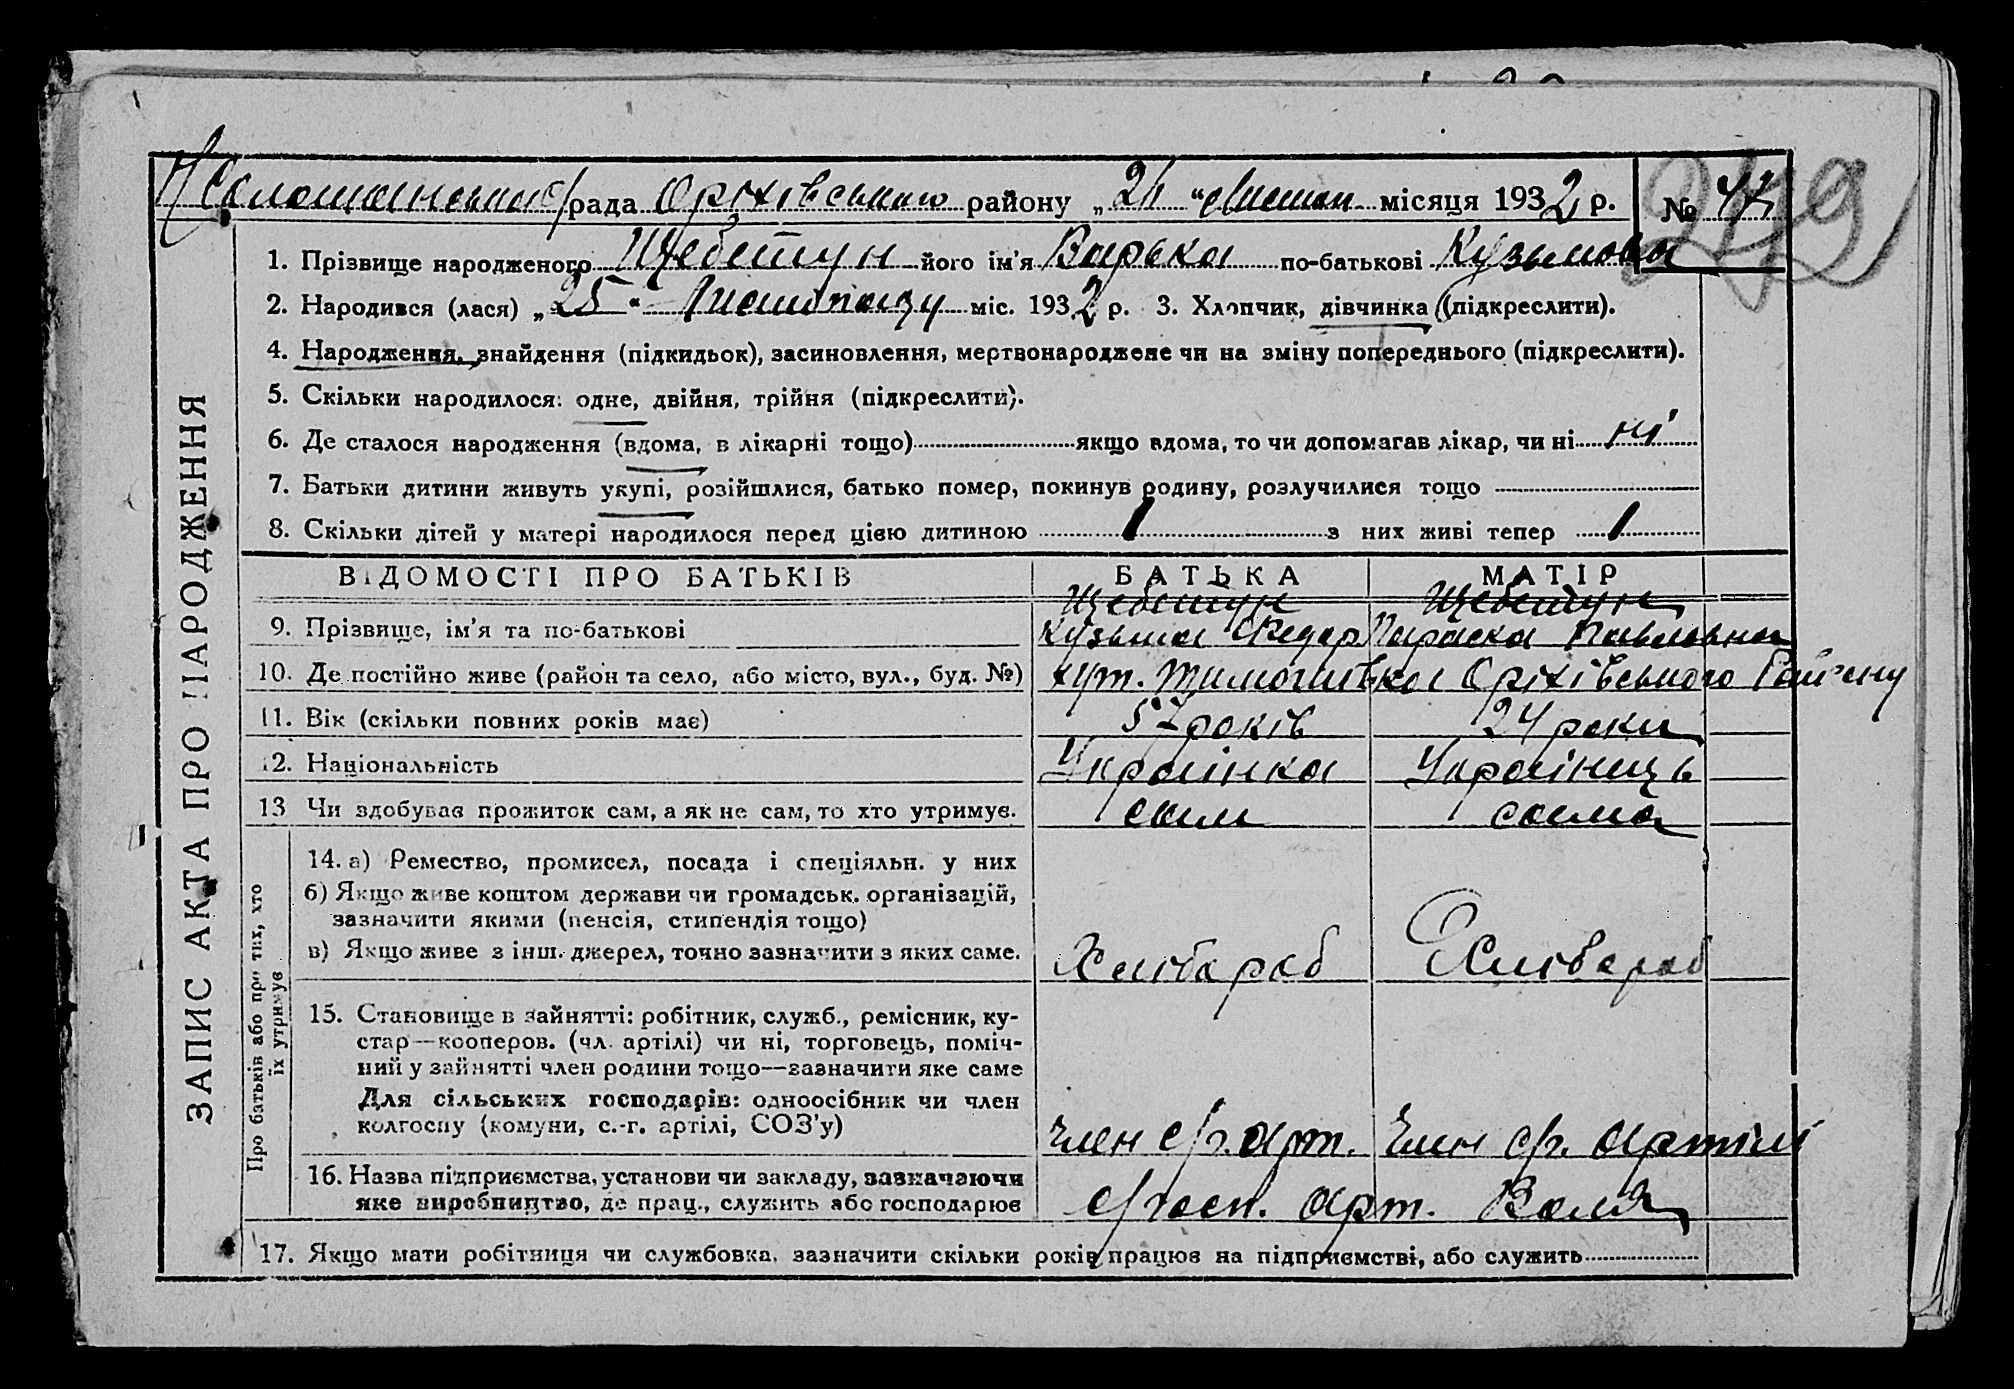 рада Оріхівського району „ 24 “ місяця 1932 р. № 47
249
1. Прізвище народженого Щебетун його ім’я Варька по-батькові Кузьмовна
2. Народився (лася) „ 25 “ Листопаду міс. 1932 р. 3. Хлопчик, дівчинка (підкреслити).
4. Народження, знайдення (підкидьок), засиновлення, мертвонароджене чи на зміну попереднього (підкреслити).
5. Скільки народилося: одне, двійня, трійня (підкреслити).
6. Де сталося народження (вдома, в лікарні тощо) якщо вдома, то чи допомагав лікар, чи ні ні
7. Батьки дитини живуть укупі, розійшлися, батько помер, покинув родину, розлучилися тощо
8. Скільки дітей у матері народилося перед цією дитиною 1 з них живі тепер 1
ЗАПИС АКТА ПРО НАРОДЖЕННЯ
ВІДОМОСТІ ПРО БАТЬКІВ БАТЬКА МАТІР
Щебетун Щебетун
9. Прізвище, ім’я та по-батькові Кузьма Федор Параска Павловна
10. Де постійно живе (район та село, або місто, вул., буд. №) хут. Тимошивка Оріхівського Району
11. Вік (скільки повних років має) 57 років 24 роки
12. Національність Українка Українець
13 Чи здобував прожиток сам, а як не сам, то хто утримує. сам сама
Про батьків або про тих, хто
їх утримує
14. а) Ремество, промисел, посада і спеціяльн. у них
б) Якщо живе коштом держави чи громадськ. організацій,
зазначити якими (пенсія, стипендія тощо)
в) Якщо живе з інш. джерел, точно зазначити з яких саме. Хлібороб Хлібороб
15. Становище в зайнятті: робітник, служб., ремісник, ку-
стар—кооперов. (чл. артілі) чи ні, торговець, поміч-
ний у зайнятті член родини тощо—зазначити яке саме
Для сільських господарів: одноосібник чи член
колгоспу (комуни, с.-г. артілі, СОЗ’у) член с/г. арт. член с/г. артілі
16. Назва підприємства, установи чи закладу, зазначаючи
яке виробництво, де прац., служить або господарює с/госп. арт. Воля
17. Якщо мати робітниця чи службовка, зазначити скільки років працює на підприємстві, або служить